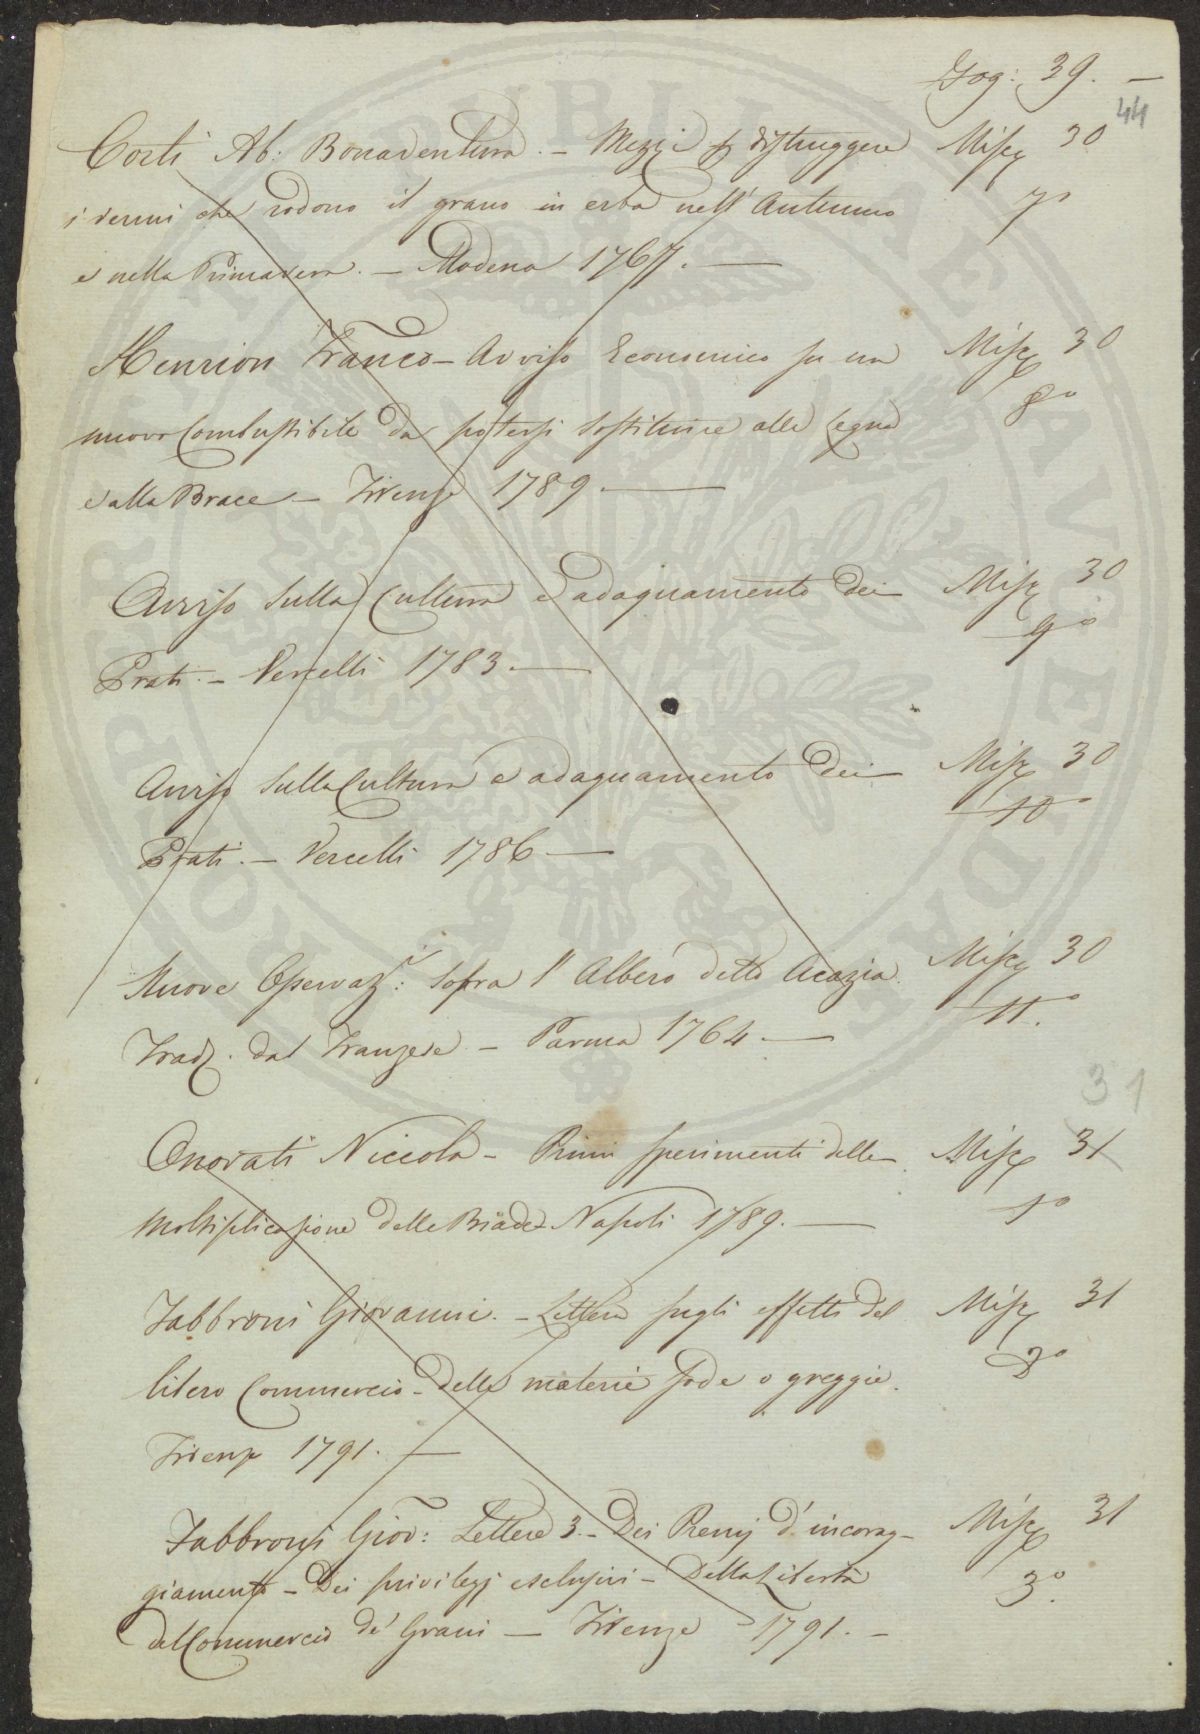 Fog: 39. —
44
Corti Ab: Bonaventura. — Mezzi p distruggere Misc 30
i vermi che rodono il grano in erba nell'Autunno 7°
e nella Primavera. — Modena 1767. —
Henrion Franco — Avviso Economico su un Misc 30
nuovo Combustibile da potersi sostituire alle Legna 8°
e alla Brace — Firenze 1789. —
Avviso sulla Cultura e adaquamento dei Misc 30
Prati. — Vercelli 1783. — 9°
Avviso sulla Cultura e adaquamento dei Misc 30
Prati. — Vercelli 1786 — 10°
Nuove Osservaz.i: sopra l'Albero detto Acazia. Misc 30
Trad. dal Franzese — Parma 1764 — 11°.
31
Onorati Niccola — Primi sperimenti della Misc 31
moltiplicazione delle Biade Napoli 1789. — 1°
Fabbroni Giovanni. — Lettera sugli effetti del Misc 31
libero Commercio — delle materie sode o greggie. 2°
Firenze 1791. —
Fabbroni Giov: Lettere 3. — Dei Premj d'incorag- Misc 31
giamento — Dei privilegj esclusivi — Della Libertà 3°.
del Commercio de' Grani — Firenze 1791. —
PRO REP
ET PUBLICAE AVO